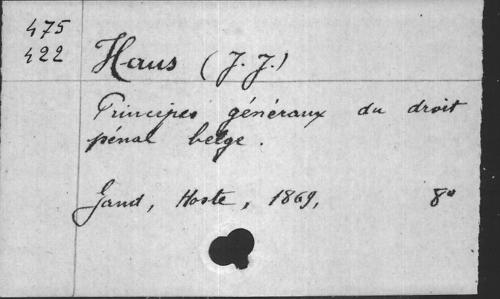 475
422
Haus (J. J.)
Principes généraux du droit
pénal belge.
Gand, Hoste, 1869, 8°